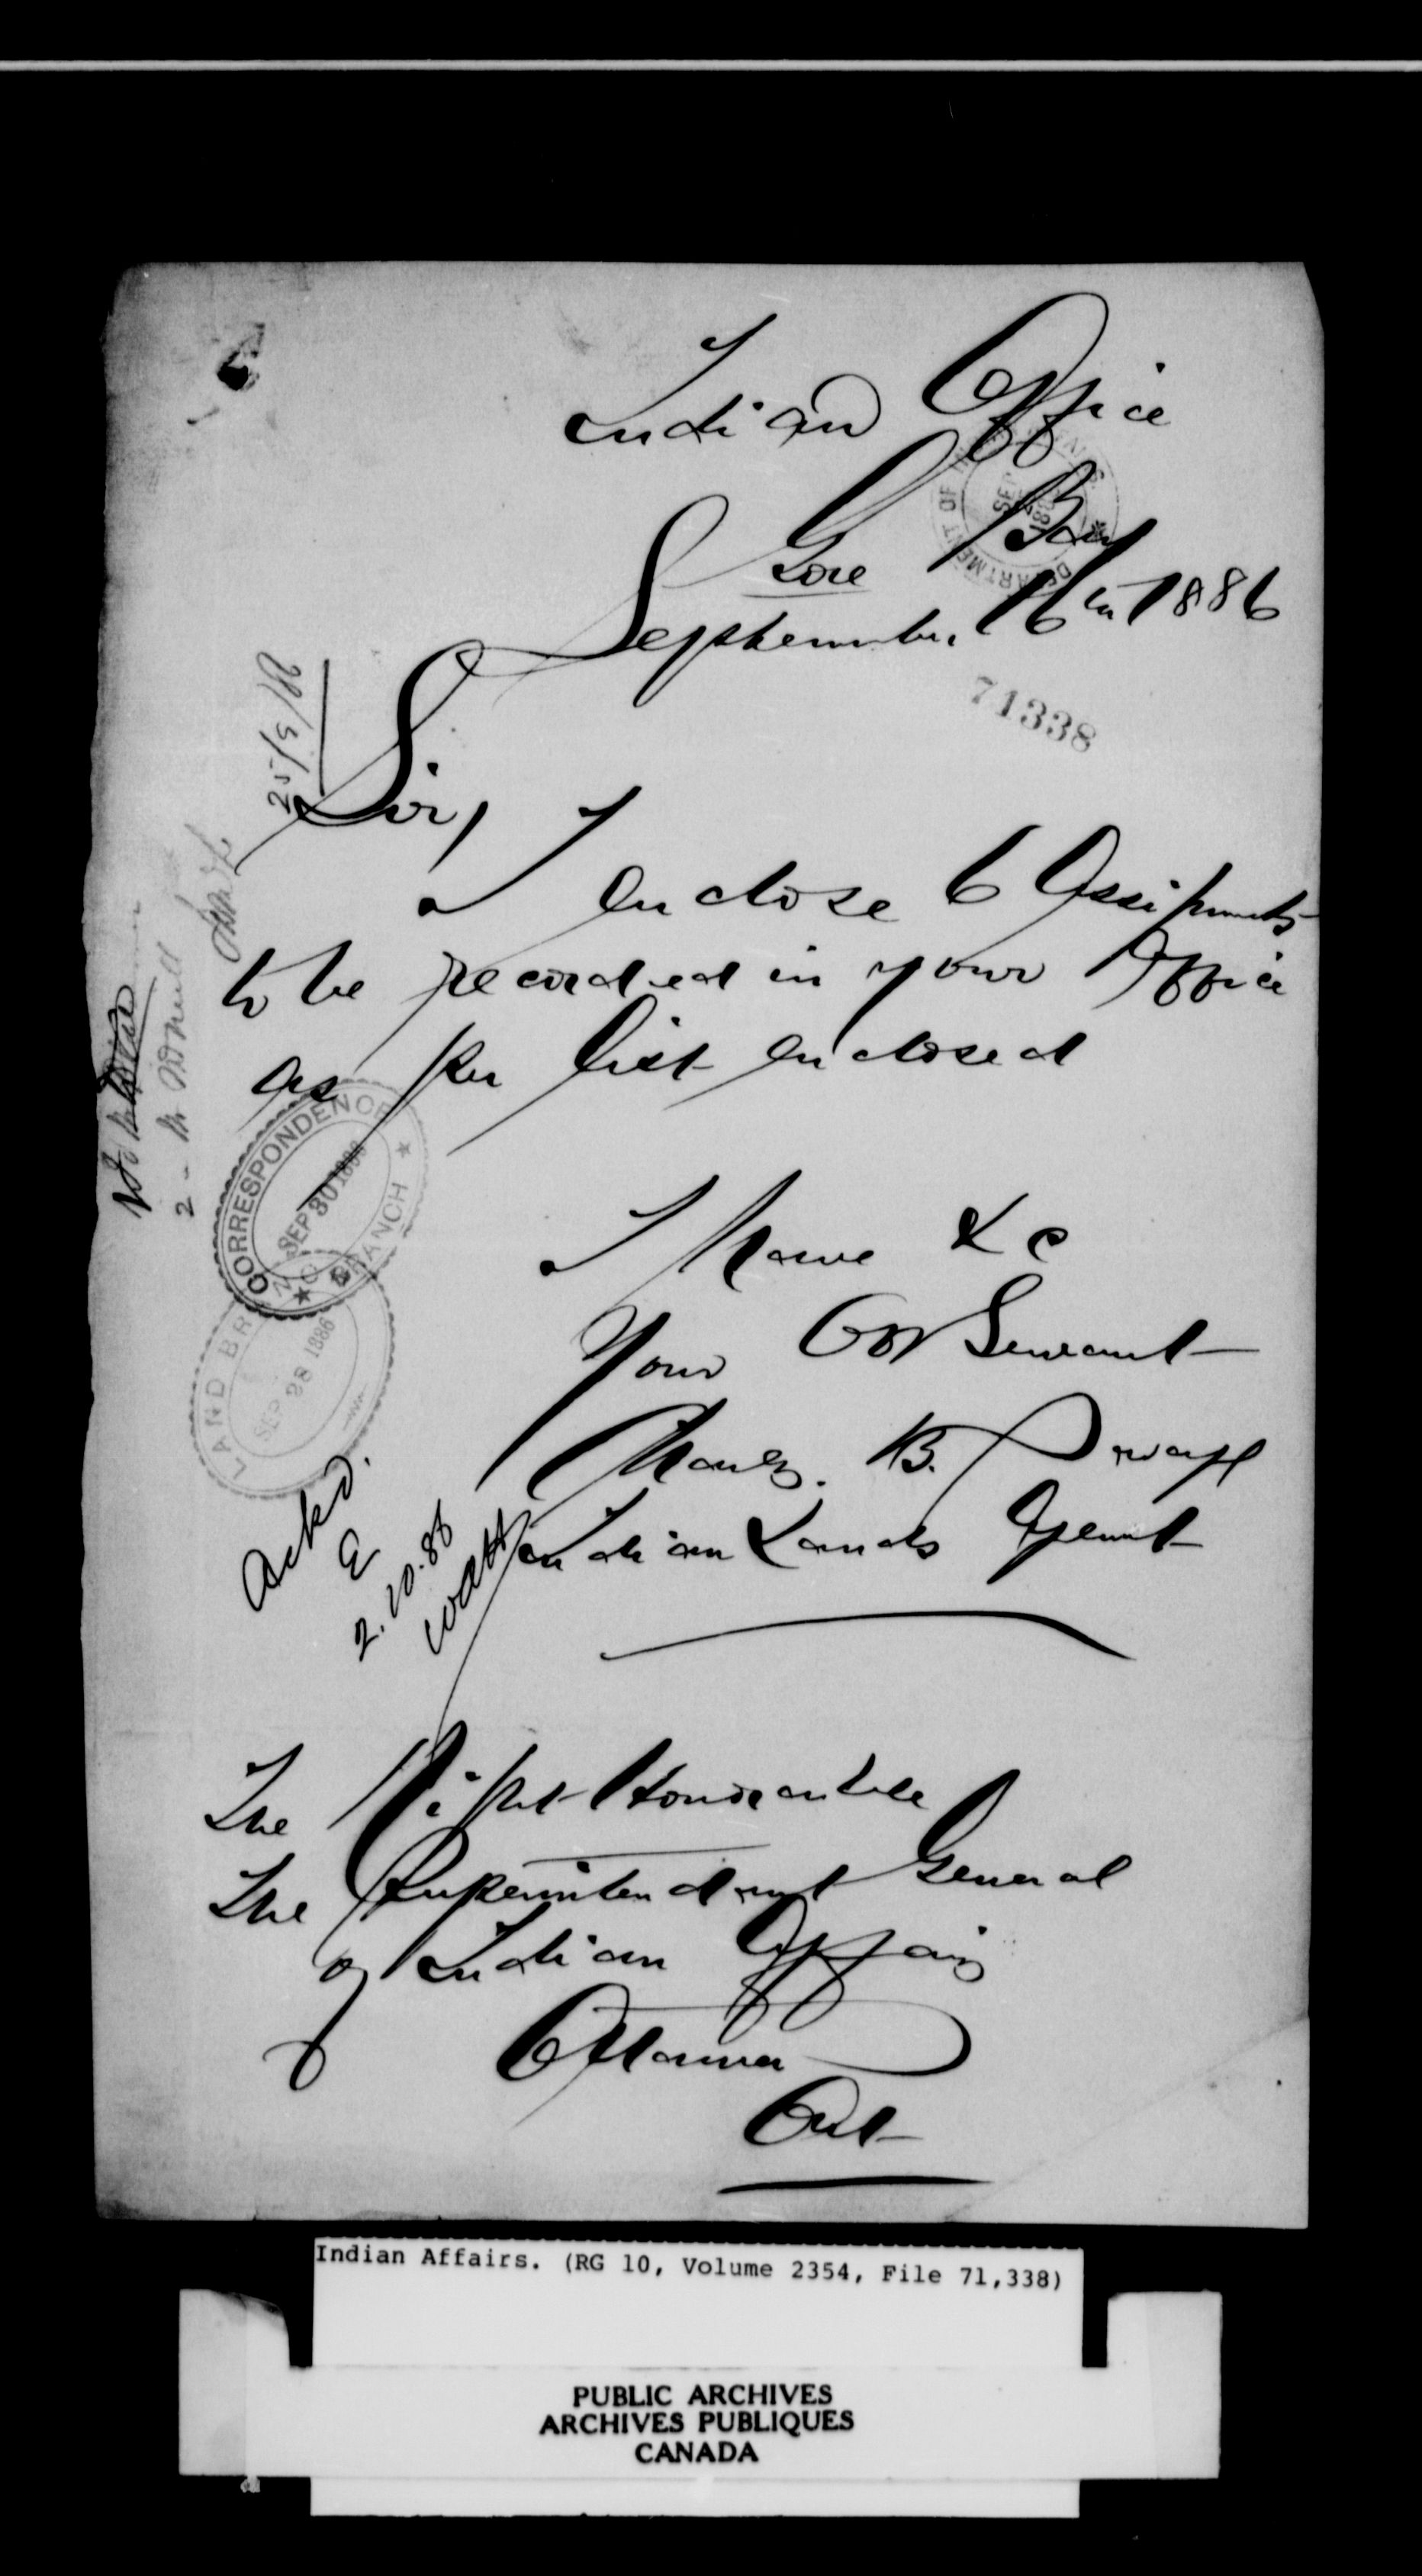 Indian Office
Gore Bay
September 16th 1886
71338
Sir,
I enclose 6 Assignments
to be recorded in your Office
as per list enclosed
I have &c
Your Ob Servant
B.
Indian Lands Agent
The Right Honourable
The Superintendent General
of Indian Affairs
Ottawa
Ont
25/9/86
CORRESPONDENCE BRANCH
SEP 30 1886
LAND BRANCH
SEP 28 1886
Ackd.
E
2.10.86
DEPARTMENT OF
SEP
Indian Affairs. (RG 10, Volume 2354, File 71,338)
PUBLIC ARCHIVES
ARCHIVES PUBLIQUES
CANADA